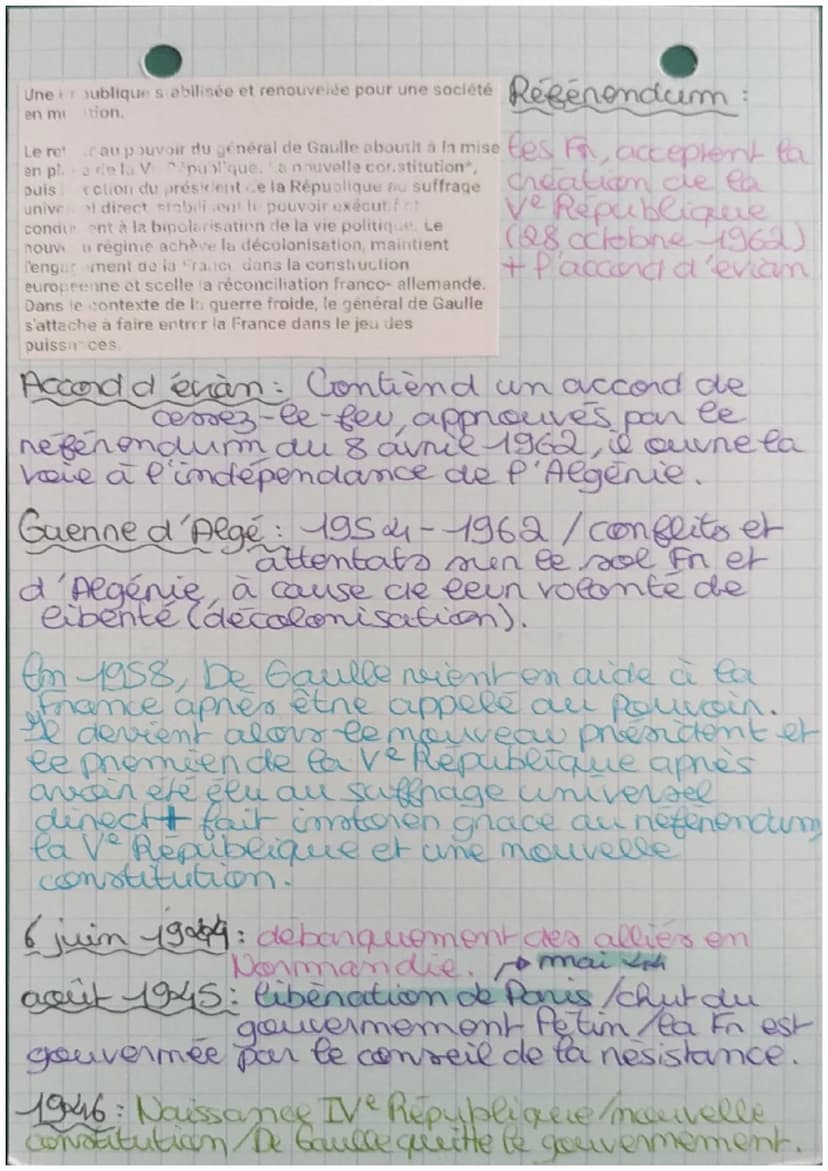 Une république stabilisée et renouvelée pour une société
en mutation.
Référendum :
Le retour au pouvoir du général de Gaulle aboutit à la mise
en place de la Ve République. La nouvelle constitution*,
puis l'élection du président de la République au suffrage
universel direct stabilisent le pouvoir exécutif et
conduisent à la bipolarisation de la vie politique. Le
nouveau régime achève la décolonisation, maintient
l'engagement de la France dans la construction
européenne et scelle la réconciliation franco- allemande.
Dans le contexte de la guerre froide, le général de Gaulle
s'attache à faire entrer la France dans le jeu des
puissances.
les Fr, acceptent la
création de la
Ve République
(28 octobre 1962)
+ l'accord d'evian
Accord d'évian : Contiend un accord de
cessez-le-feu, approuvés par le
référendum du 8 avril 1962, il ouvre la
voie à l'indépendance de l'Algérie.
Guerre d'Algé : 1954-1962 / conflits et
attentats sur le sol Fr et
d'Algérie, à cause de leur volonté de
liberté (décolonisation).
En 1958, De Gaulle vient en aide à la
France après être appelé au pouvoir.
Il devient alors le nouveau président et
le premier de la Ve République après
avoir été élu au suffrage universel
direct + fait instorer grace au référendum
la Ve République et une nouvelle
constitution.
6 juin 1944 : débarquement des alliés en
Normandie. → mai
août 1945 : libération de Paris / chut du
gouvernement Pétin / la Fr est
gouvernée par le conseil de la résistance.
1946 : Naissance IVe République / nouvelle
constitution / De Gaulle quitte le gouvernement.